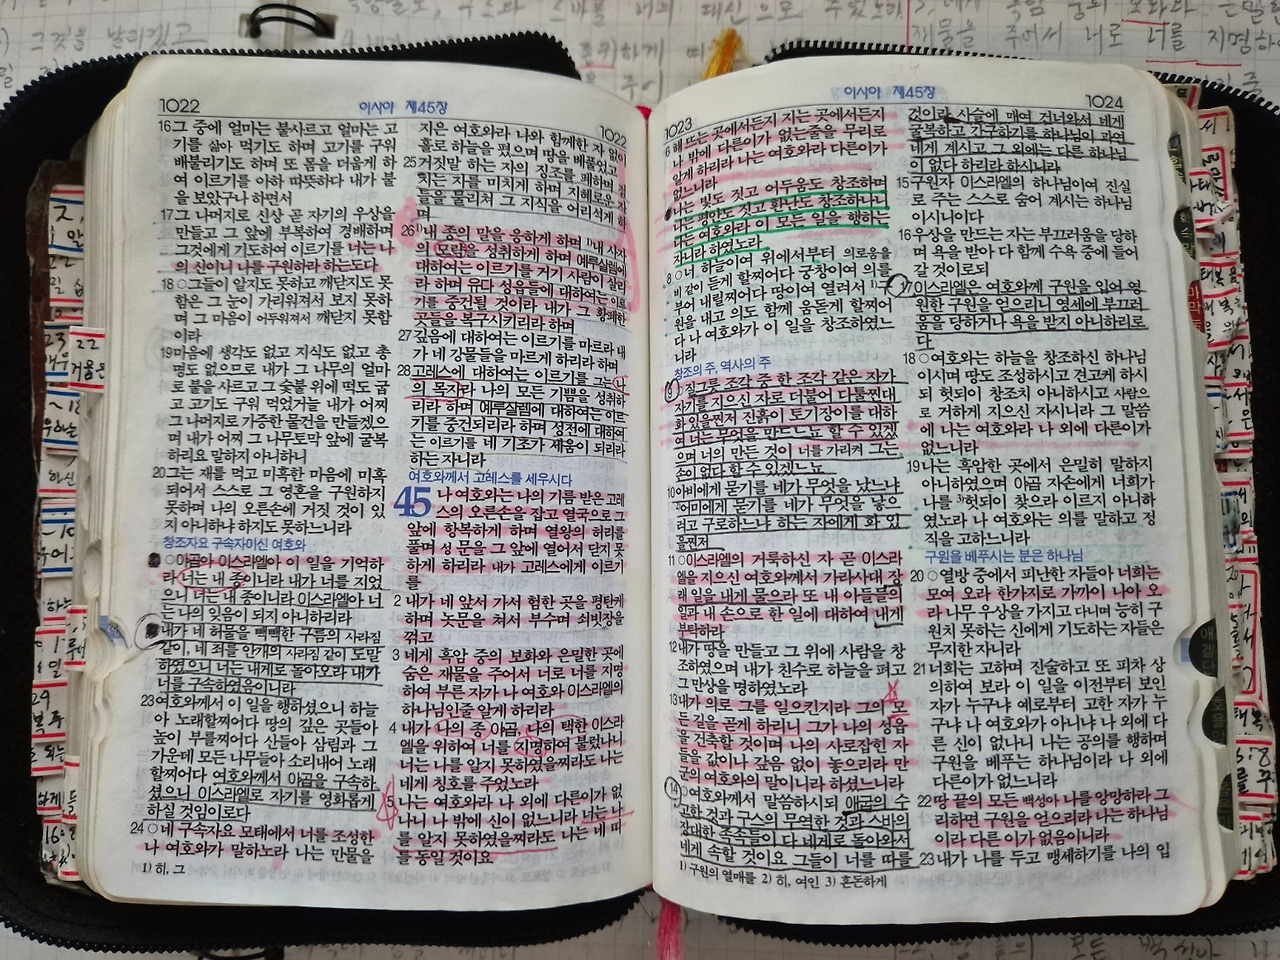 1022
이사야 제45장
16그 중에 얼마는 불사르고 얼마는 고
기를 삶아 먹기도 하며 고기를 구워
배불리기도 하며 또 몸을 더웁게 하
여 이르기를 아하 따뜻하다 내가 불
을 보았구나 하면서
17그 나머지로 신상 곧 자기의 우상을
만들고 그 앞에 부복하여 경배하며
그것에게 기도하여 이르기를 너는 나
의 신이니 나를 구원하라 하는도다
18○그들이 알지도 못하고 깨닫지도 못
함은 그 눈이 가리워져서 보지 못하
며 그 마음이 어두워져서 깨닫지 못함
이라
19마음에 생각도 없고 지식도 없고 총
명도 없으므로 내가 그 나무의 얼마
로 불을 사르고 그 숯불 위에 떡도 굽
고 고기도 구워 먹었거늘 내가 어찌
그 나머지로 가증한 물건을 만들겠으
며 내가 어찌 그 나무토막 앞에 굴복
하리요 말하지 아니하니
20그는 재를 먹고 미혹한 마음에 미혹
되어서 스스로 그 영혼을 구원하지
못하며 나의 오른손에 거짓 것이 있
지 아니하냐 하지도 못하느니라
창조자요 구속자이신 여호와
○야곱아 이스라엘아 이 일을 기억하
라 너는 내 종이니라 내가 너를 지었
으니 너는 내 종이니라 이스라엘아 너
는 나의 잊음이 되지 아니하리라
내가 네 허물을 빽빽한 구름의 사라짐
같이, 네 죄를 안개의 사라짐 같이 도말
하였으니 너는 내게로 돌아오라 내가
너를 구속하였음이니라
23여호와께서 이 일을 행하셨으니 하늘
아 노래할찌어다 땅의 깊은 곳들아
높이 부를찌어다 산들아 삼림과 그
가운데 모든 나무들아 소리내어 노래
할찌어다 여호와께서 야곱을 구속하
셨으니 이스라엘로 자기를 영화롭게
하실 것임이로다
24○네 구속자요 모태에서 너를 조성한
나 여호와가 말하노라 나는 만물을
1) 히, 그
1022
지은 여호와라 나와 함께한 자 없이
홀로 하늘을 폈으며 땅을 베풀었고
25거짓말 하는 자의 징조를 폐하며 점
치는 자를 미치게 하며 지혜로운 자
들을 물리쳐 그 지식을 어리석게 하
며
26 1)내 종의 말을 응하게 하며 1)내 사자
의 모략을 성취하게 하며 예루살렘에
대하여는 이르기를 거기 사람이 살리
라 하며 유다 성읍들에 대하여는 이르
기를 중건될 것이라 내가 그 황폐한
곳들을 복구시키리라 하며
27깊음에 대하여는 이르기를 마르라 내
가 네 강물들을 마르게 하리라 하며
28고레스에 대하여는 이르기를 그는 나
의 목자라 나의 모든 기쁨을 성취하
리라 하며 예루살렘에 대하여는 이르
기를 중건되리라 하며 성전에 대하여
는 이르기를 네 기초가 세움이 되리라
하는 자니라
여호와께서 고레스를 세우시다
45 나 여호와는 나의 기름 받은 고레
스의 오른손을 잡고 열국으로 그
앞에 항복하게 하며 열왕의 허리를
풀며 성 문을 그 앞에 열어서 닫지 못
하게 하리라 내가 고레스에게 이르기
를
2 내가 네 앞서 가서 험한 곳을 평탄케
하며 놋문을 쳐서 부수며 쇠빗장을
꺾고
3 네게 흑암 중의 보화와 은밀한 곳에
숨은 재물을 주어서 너로 너를 지명
하여 부른 자가 나 여호와 이스라엘의
하나님인줄 알게 하리라
4 내가 나의 종 야곱, 나의 택한 이스라
엘을 위하여 너를 지명하여 불렀나니
너는 나를 알지 못하였을찌라도 나는
네게 칭호를 주었노라
5 나는 여호와라 나 외에 다른이가 없
나니 나 밖에 신이 없느니라 너는 나
를 알지 못하였을찌라도 나는 네 띠
를 동일 것이요
이사야 제45장
1024
1023
6 해 뜨는 곳에서든지 지는 곳에서든지
나 밖에 다른이가 없는줄을 무리로
알게 하리라 나는 여호와라 다른이가
없느니라
나는 빛도 짓고 어두움도 창조하며
나는 평안도 짓고 환난도 창조하나니
나는 여호와라 이 모든 일을 행하는
자니라 하였노라
8 ○너 하늘이여 위에서부터 의로움을
비 같이 듣게 할찌어다 궁창이여 의를
부어 내릴찌어다 땅이여 열려서 1)구
원을 내고 의도 함께 움돋게 할찌어
다 나 여호와가 이 일을 창조하였느
니라
창조의 주, 역사의 주
9○질그릇 조각 중 한 조각 같은 자가
자기를 지으신 자로 더불어 다툴찐대
화 있을찐저 진흙이 토기장이를 대하
여 너는 무엇을 만드느뇨 할 수 있겠
으며 너의 만든 것이 너를 가리켜 그는
손이 없다 할 수 있겠느뇨
10아비에게 묻기를 네가 무엇을 났느냐
2)어미에게 묻기를 네가 무엇을 낳으
려고 구로하느냐 하는 자에게 화 있
을찐저
11○이스라엘의 거룩하신 자 곧 이스라
엘을 지으신 여호와께서 가라사대 장
래 일을 내게 물으라 또 내 아들들의
일과 내 손으로 한 일에 대하여 내게
부탁하라
12내가 땅을 만들고 그 위에 사람을 창
조하였으며 내가 친수로 하늘을 펴고
그 만상을 명하였노라
13내가 의로 그를 일으킨지라 그의 모
든 길을 곧게 하리니 그가 나의 성읍
을 건축할 것이며 나의 사로잡힌 자
들을 값이나 갚음 없이 놓으리라 만
군의 여호와의 말이니라 하셨느니라
14○여호와께서 말씀하시되 애굽의 수
고한 것과 구스의 무역한 것과 스바의
장대한 족속들이 다 네게로 돌아와서
네게 속할 것이요 그들이 너를 따를
1) 구원의 열매를 2) 히, 여인 3) 혼돈하게
것이라 사슬에 매여 건너와서 네게
굴복하고 간구하기를 하나님이 과연
네게 계시고 그 외에는 다른 하나님
이 없다 하리라 하시니라
15구원자 이스라엘의 하나님이여 진실
로 주는 스스로 숨어 계시는 하나님
이시니이다
16우상을 만드는 자는 부끄러움을 당하
며 욕을 받아 다 함께 수욕 중에 들어
갈 것이로되
17이스라엘은 여호와께 구원을 입어 영
원한 구원을 얻으리니 영세에 부끄러
움을 당하거나 욕을 받지 아니하리로
다
18○여호와는 하늘을 창조하신 하나님
이시며 땅도 조성하시고 견고케 하시
되 헛되이 창조치 아니하시고 사람으
로 거하게 지으신 자시니라 그 말씀
에 나는 여호와라 나 외에 다른이가
없느니라
19나는 흑암한 곳에서 은밀히 말하지
아니하였으며 야곱 자손에게 너희가
나를 3)헛되이 찾으라 이르지 아니하
였노라 나 여호와는 의를 말하고 정
직을 고하느니라
구원을 베푸시는 분은 하나님
20○열방 중에서 피난한 자들아 너희는
모여 오라 한가지로 가까이 나아 오
라 나무 우상을 가지고 다니며 능히 구
원치 못하는 신에게 기도하는 자들은
무지한 자니라
21너희는 고하며 진술하고 또 피차 상
의하여 보라 이 일을 이전부터 보인
자가 누구냐 예로부터 고한 자가 누
구냐 나 여호와가 아니냐 나 외에 다
른 신이 없나니 나는 공의를 행하며
구원을 베푸는 하나님이라 나 외에
다른이가 없느니라
22땅 끝의 모든 백성아 나를 앙망하라 그
리하면 구원을 얻으리라 나는 하나님
이라 다른 이가 없음이니라
23내가 나를 두고 맹세하기를 나의 입